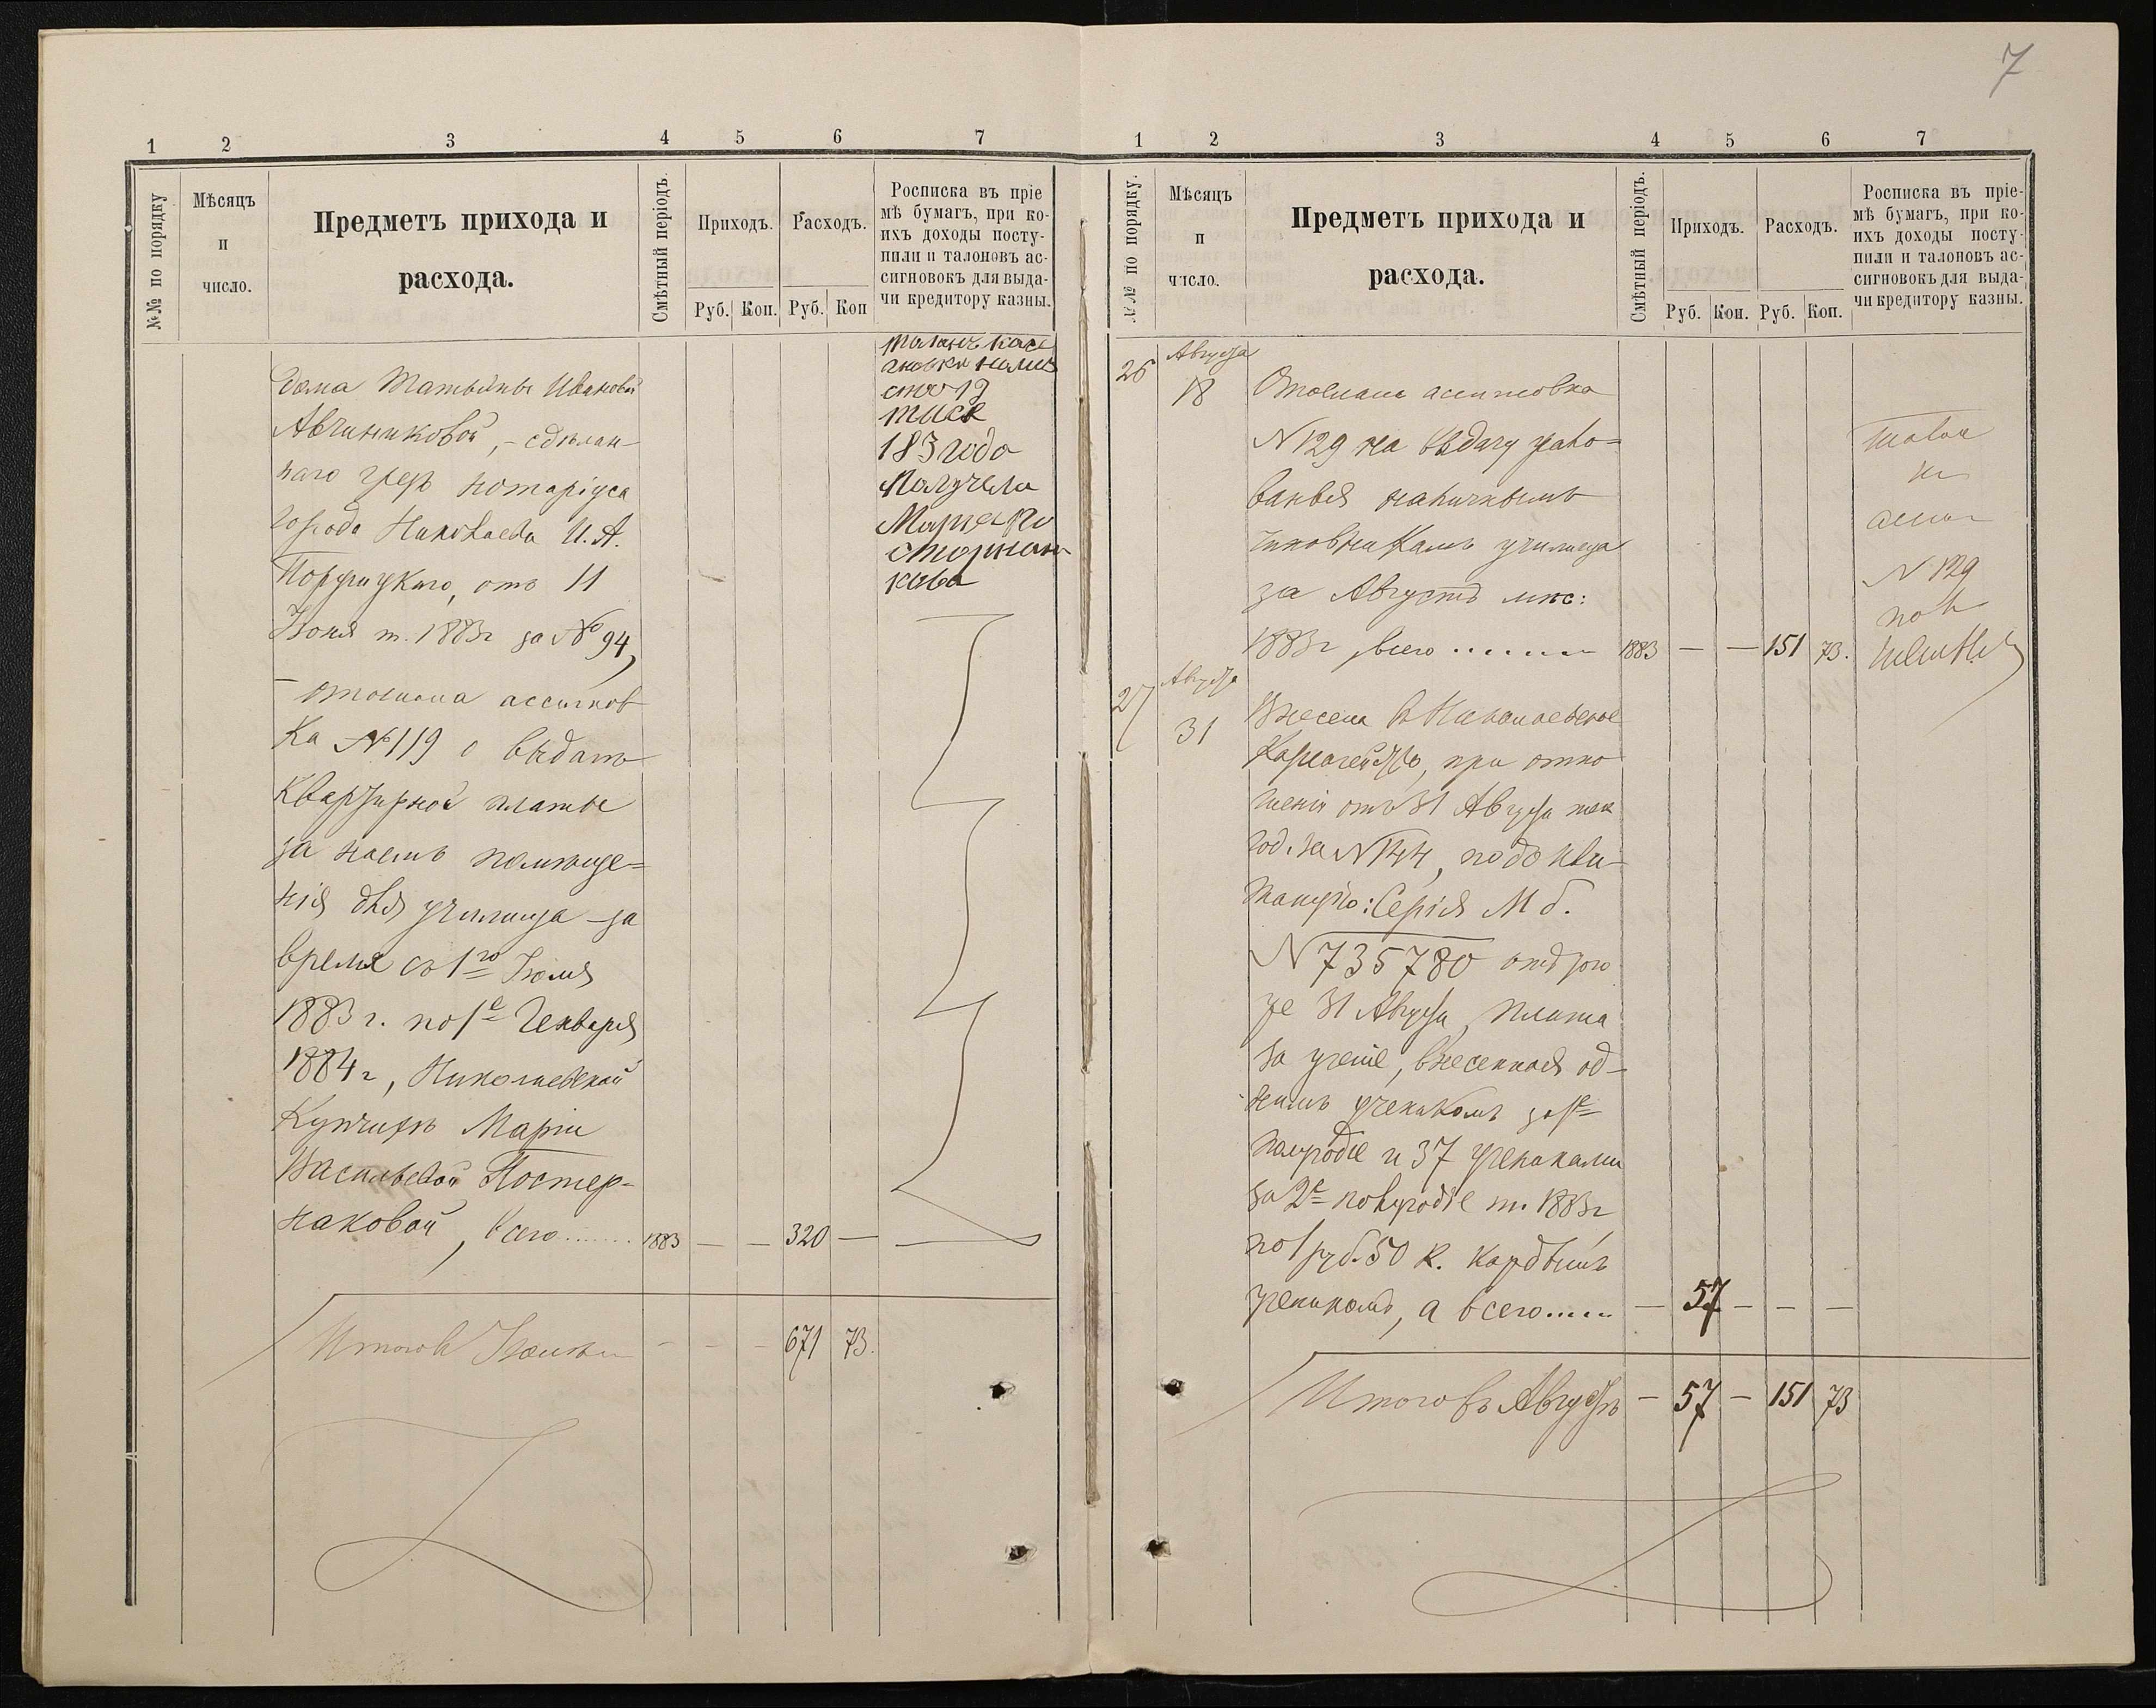 7
1 2 3 4 5 6 7
№№ по порядку
Мѣсяцъ
и
число.
Предметъ прихода и
расхода.
Смѣтный періодъ.
Приходъ.
Расходъ.
Руб. Коп. Руб. Коп
Росписка въ пріе
мѣ бумагъ, при ко-
ихъ доходы посту-
пили и талоновъ ас-
сигновокъ для выда-
чи кредитору казны.
дома Татьяны Ивановой
Авчиниковой, – сдѣлан-
наго чрезъ нотаріуса
города Николаева И. А.
отъ 11
Іюня т. 1883г за № 94,
– отослана ассигнов
ка №119 о выдачѣ
квартирной платы
за наемъ помѣще=
нія для училища – за
время съ 1го Іюля
1883 г. по 1е Генваря
1884 г, Николаевской
Купчихѣ Маріи
Васильевой Постер-
наковой, всего........ 1883 — — 320 —
Получела
Итого въ – – – 671 73.
1 2 3 4 5 6 7
№№ по порядку.
Мѣсяцъ
и
число.
Предметъ прихода и
расхода.
Смѣтный періодъ.
Приходъ.
Расходъ.
Руб. Коп. Руб. Коп.
Росписка въ пріе-
мѣ бумагъ, при ко-
ихъ доходы посту-
пили и талоновъ ас-
сигновокъ для выда-
чи кредитору казны.
26 Августа
18 Отослана ассигновка
N 129 на выдачу жало=
ванья наличнымъ
чиновникамъ училища
за Августъ мѣс:
1883г, всего ........ 1883 — — 151 73.
N 129
27 Августа
31 Внесена въ Николаевское
Казначейство, при отно
шеніи отъ 31 Августа тек
год. за N 144, подъ кви-
танцію: Серія М б.
N 735780 отъ того
же 31 Августа, плата
за ученіе, внесенная од-
нимъ ученикомъ за 1е
полугодіе и 37 учениками
за 2е полугодіе т. 1883г
по 1 руб. 50 к. каждымъ
ученикомъ, а всего...... — 57 – – —
Итого въ Августѣ – 57 – 151 73